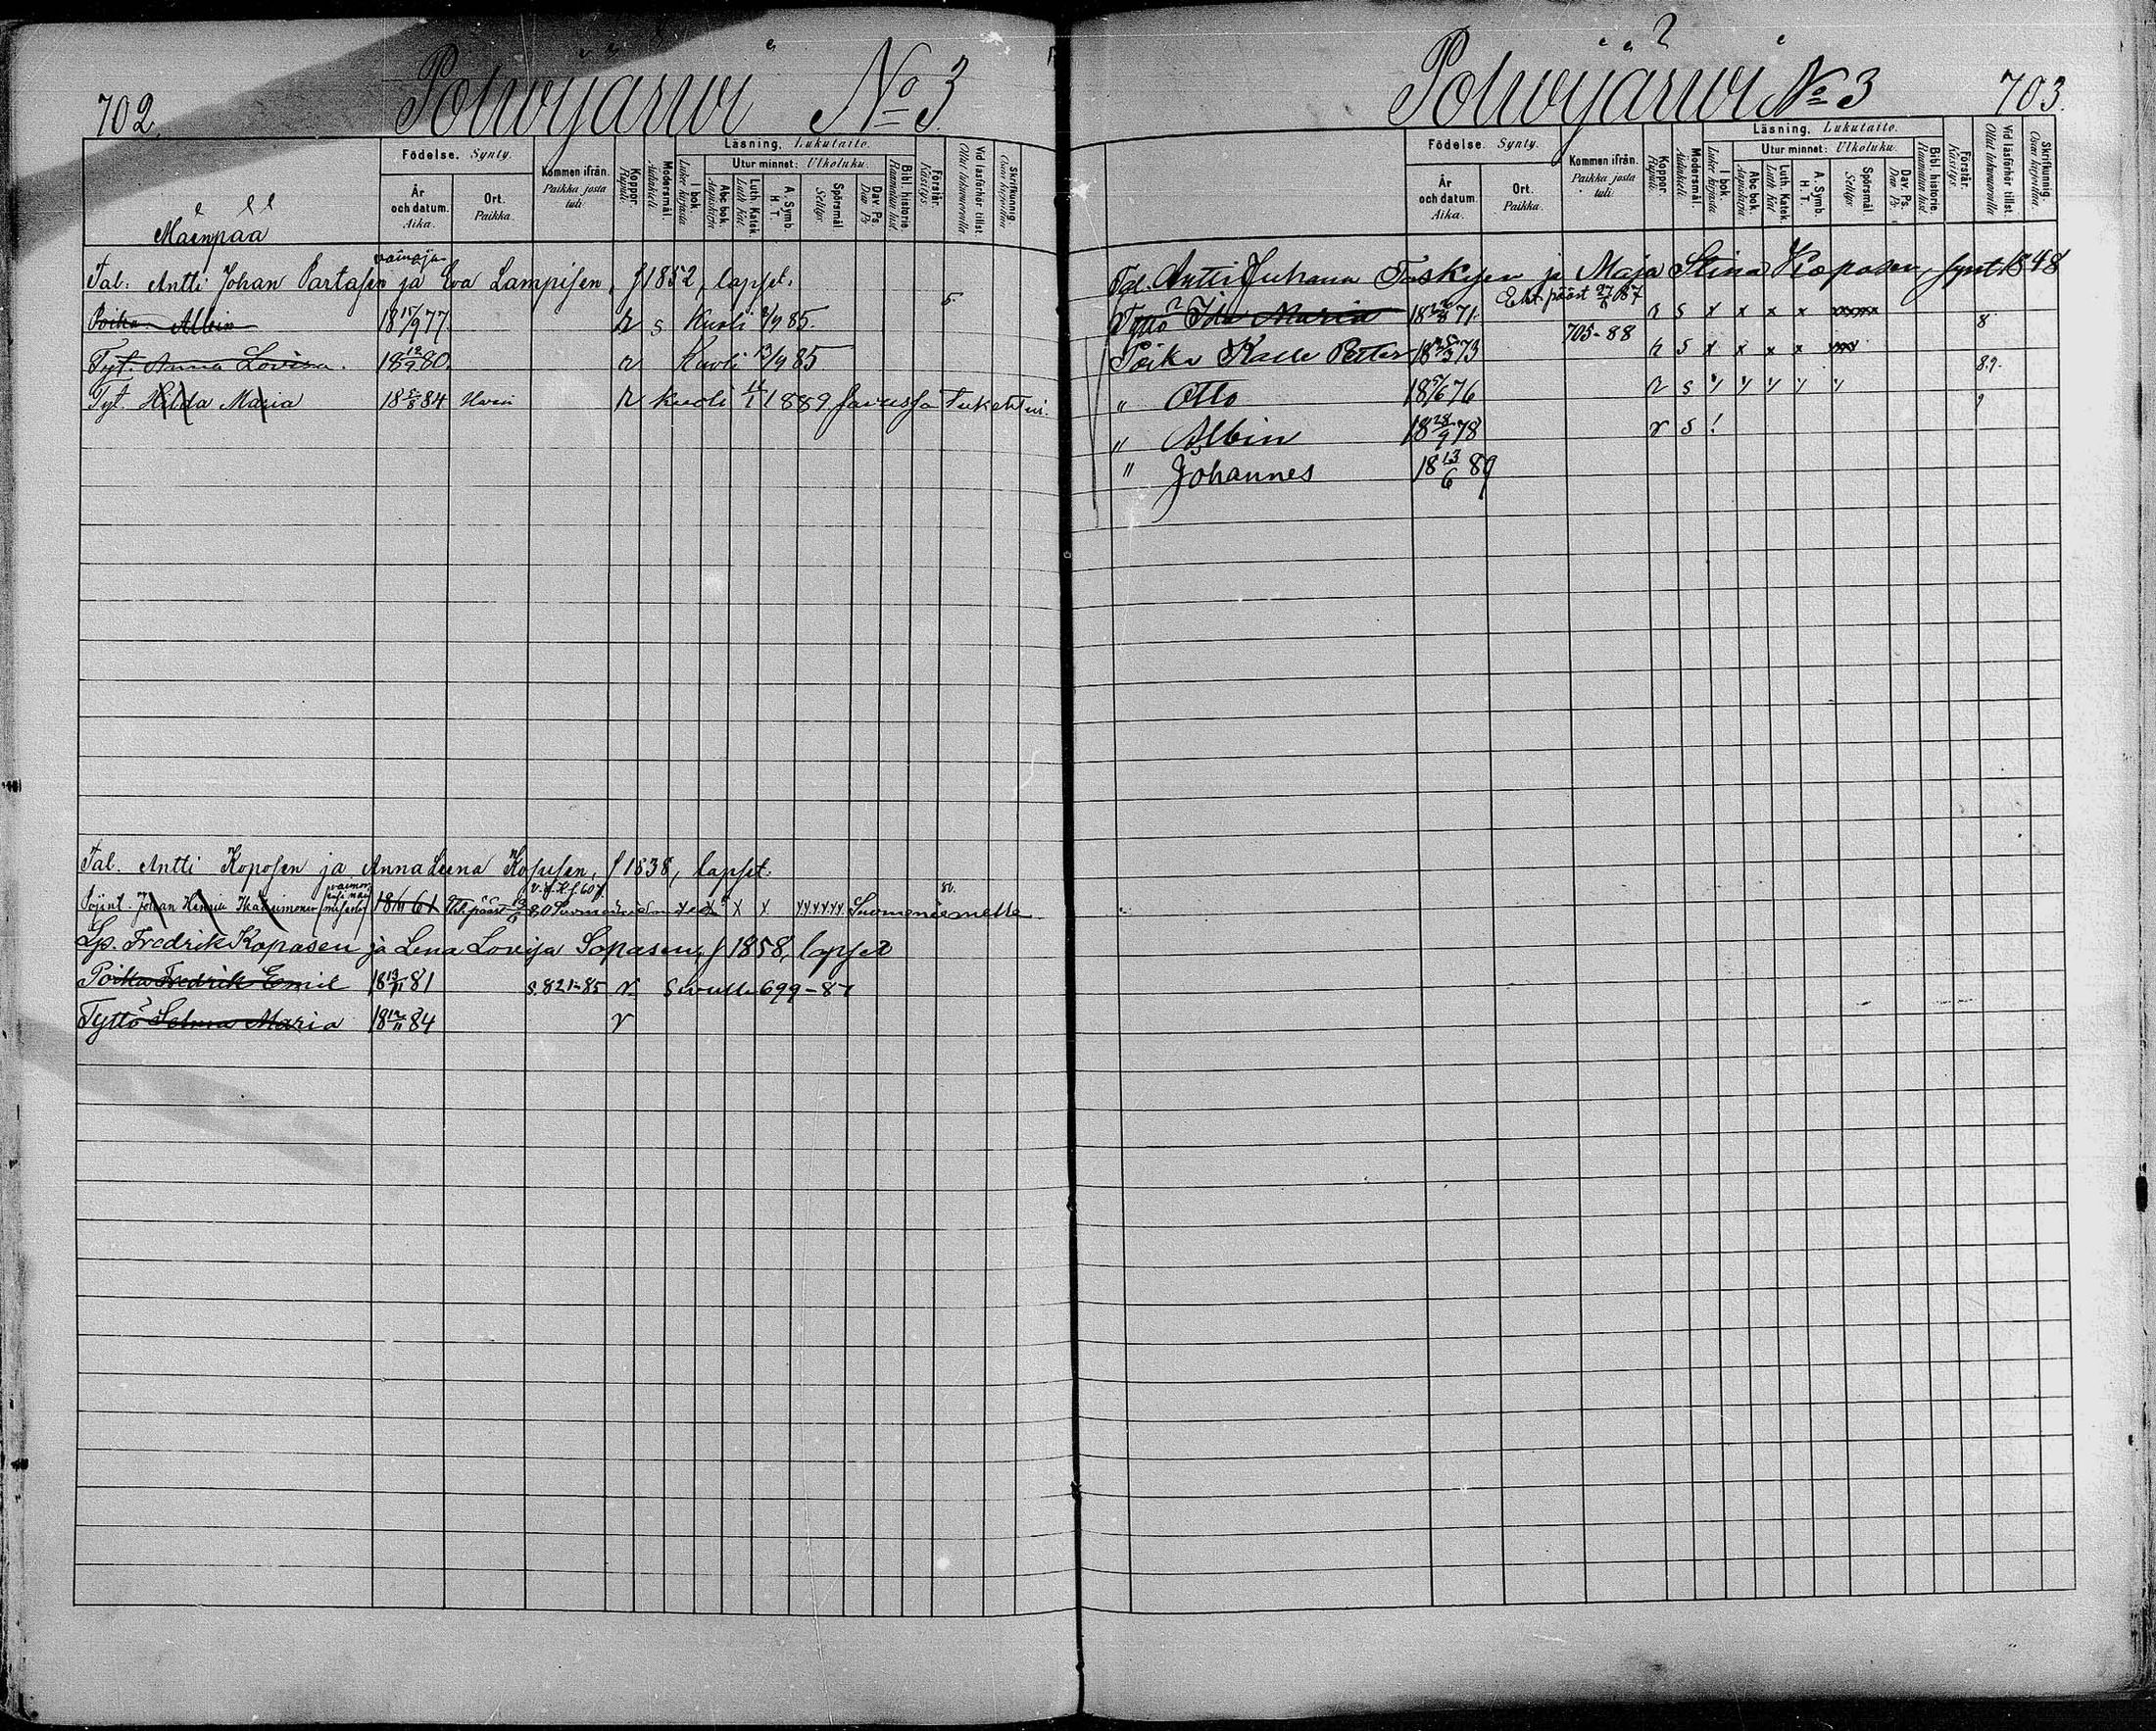 702. Polvijärwi No 3
Födelse. Synty.
Kommen ifrån. Paikka josta tuli.
Koppor. Rupuli.
Modersmål. Äidinkieli.
Läsning. Lukutaito.
I bok. Lukee kirjasta
Utur minnet: Ulkoluku.
Abc bok. Aapiskirja
Luth. Katek. Luth kat
A. Symb. H. T.
Spörsmål Selitys.
Dav. Ps. Dav. Ps
Bibl. historie Raamatun hist.
Förstår. Käsitys.
Vid läsförhör tillst. Ollut lukuvuorolla
Skrifkunnig. Osaa kirjoittaa
År och datum. Aika.
Ort. Paikka.
Mäenpää
Tal. Antti Johan Partasen ja vainajan Eva Lampisen, f 1852, lapset.
Poika Albin 18 15/9 77. r s Kuoli 2/9 85. 5
Tyt. Anna Lovisa. 18 12/9 80. r Kuoli 13/9 85
Tyt. Hilda Maria 18 5/8 84 r kuoli 1889
Tal. Antti Koposen ja Anna Leena Kosusen, f 1838, lapset.
Johan Henrik 18 61 x x Suomeniemelle
Lp. Fredrik Kopasen ja Lena Lovisa Sopasen, f 1858, lapset
Poika Fredrik Emil 18 13/11 81 S. 821-85 r. Sivulle 699-87
Tyttö Selma Maria 18 12/11 84 r
Polvijärwi No 3 703.
Födelse. Synty.
Kommen ifrån. Paikka josta tuli.
Koppor. Rupuli.
Modersmål. Äidinkieli.
Läsning. Lukutaito.
I bok. Lukee kirjasta
Utur minnet: Ulkoluku.
Abc bok. Aapiskirja.
Luth. Katek. Luth kat
A. Symb. H. T.
Spörsmål Selitys
Dav. Ps. Dav. Ps.
Bibl. historie Raamatun hist.
Förstår. Käsitys.
Vid läsförhör tillst. Ollut lukuvuorolla
Skrifkunnig. Osaa kirjoittaa.
År och datum. Aika.
Ort. Paikka.
Tal. Antti Juhana Toskysen ja Maja Stina Koposen, synt 1848
Tyttö Ida Maria 18 71. Eht. pääst 27/6 87 r s x x x x xxxxx 8
Poika Kalle Petter 18 73 705-88 r s x x x x xxx 89.
" Otto 18 5/6 76 r s
" Albin 18 28/9 78 r s !
" Johannes 18 13/6 89